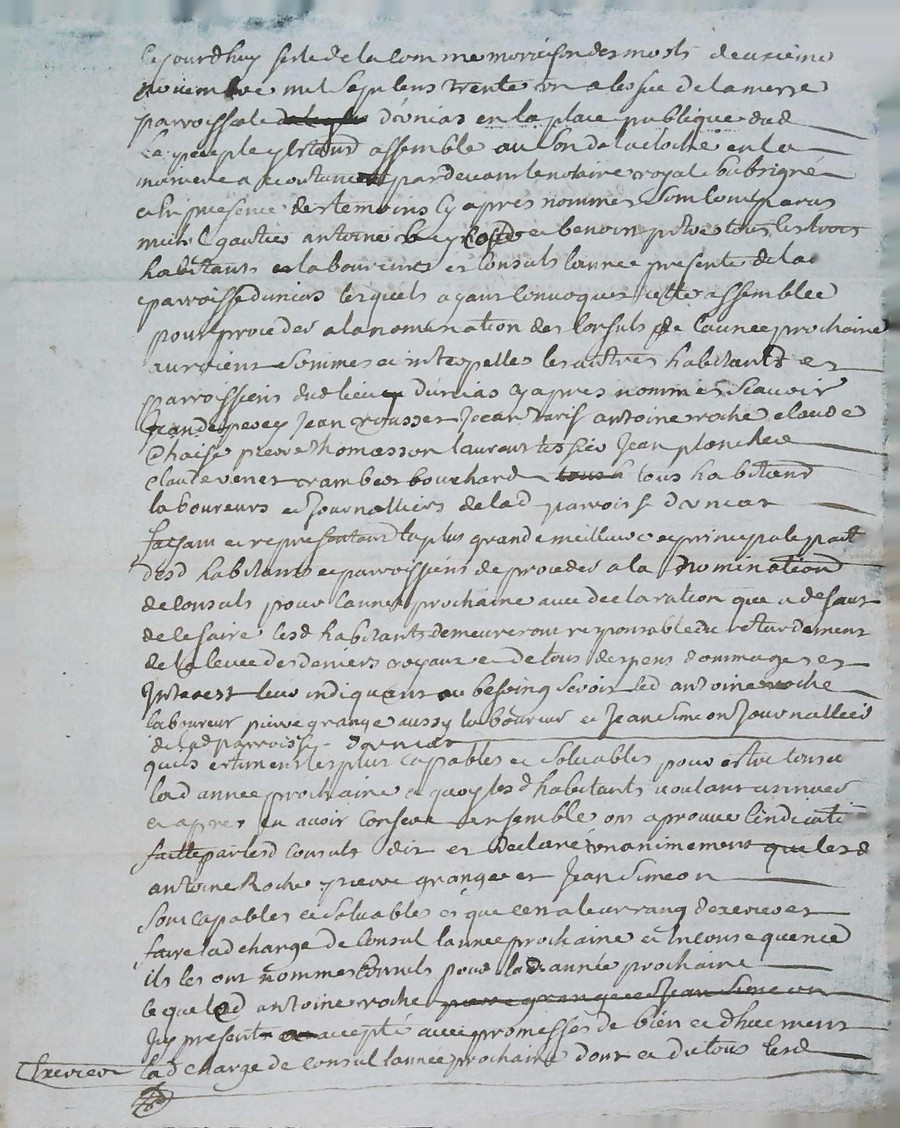 Cejourdhuy feste de la Commemorrason des morts deuxieme
novembre mil sept cens trente un a lissue de la messe
parroissiale d'uniac en la place publique dud
le peuple y estand assemblé au son de la cloche en la
maniere accoutumée pardevant le notaire royal soubsigné
et en presence des temoins cy apres nommes sont comparus
michel gautier antoine et benoin tous les trois
habitants et laboureurs et Consuls lannee presente de lad
parroisse duniac lesquels ayant convoquer cette assemblee
pour proceder a la nomination des Consuls de lannee prochaine
auroient sommes et interpelles les autres habitants et
parroissiens dud lieu duniac cy apres nommes Scavoir
Jean antoine roche claude
Chaise pierre thomasson laurent tissier Jean planchers
claude venet bouchard tous habitand
laboureurs et Journalliers de lad parroisse duniac
faisant et representand la plus grande meilleure et principale part
desd habitants et parroissiens de proceder a la nominationd
de Consuls pour lannee prochaine avec declaration que a defaut
de le faire lesd habitants demeureront responsable du retardement
de la levee des deniers royaux et de tous despens dommages et
Interest leur indiquant au besoing Scavoir led antoine roche
laboureur pierre grange aussy laboureur et Jean Simeon Journallier
de lad parroisse duniac
quils estiment les plus capables et Solvables pour estre consul
lad annee prochaine a quoy lesd habitants voulant
et apres en avoir Conferé ensemble ont aprouvé lindicatio
faitte par lesd Consuls dit et declaré unanimement que lesd
antoine Roche pierre grange et Jean Simeon
Sont capables et Solvables et que cen a leur rang dexercer et
faire lad charge de Consul lannee prochaine et en consequence
ils les ont nommes Consuls pour lad année prochaine
lequel led antoine roche pierre grange et Jean Simeon
Icy present a accepté avec promesses de bien et dhuement
Exercer lad charge de Consul lannee prochaine dont et de tous lesd